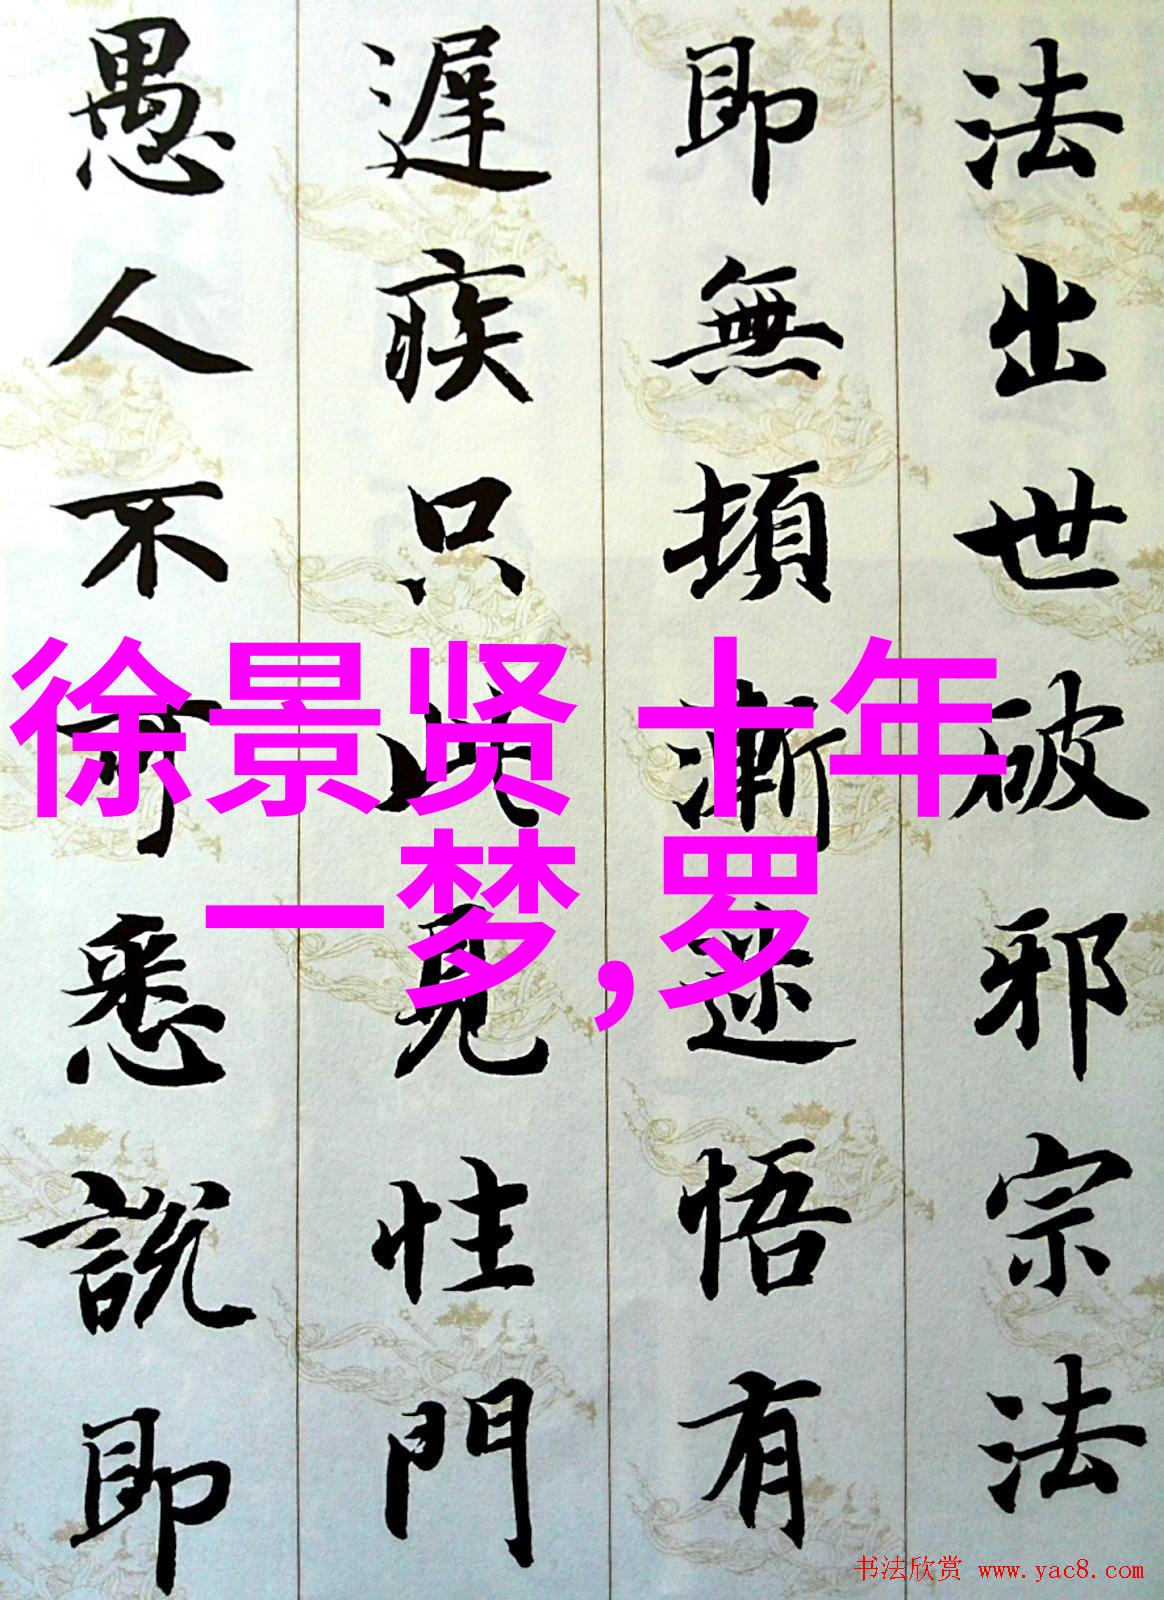 法出世破邪宗法
即無頓漸迷悟有
遲疾只此見性門
愚人不可悉說即
徐景贤 十年
一梦,罗
书法欣赏 www.yac8.com